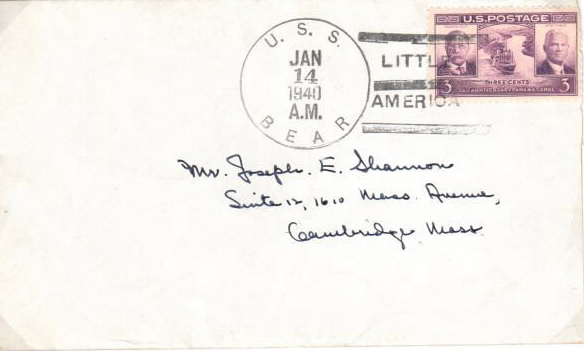 U. S. S.
JAN
14
1940
A.M.
BEAR
LITTLE
AMERICA
U.S. POSTAGE
THREE CENTS
3 25TH ANNIVERSARY PANAMA CANAL 3
Mr. Joseph. E. Shannon
Suite 12, 1610 Mass. Avenue,
Cambridge, Mass.